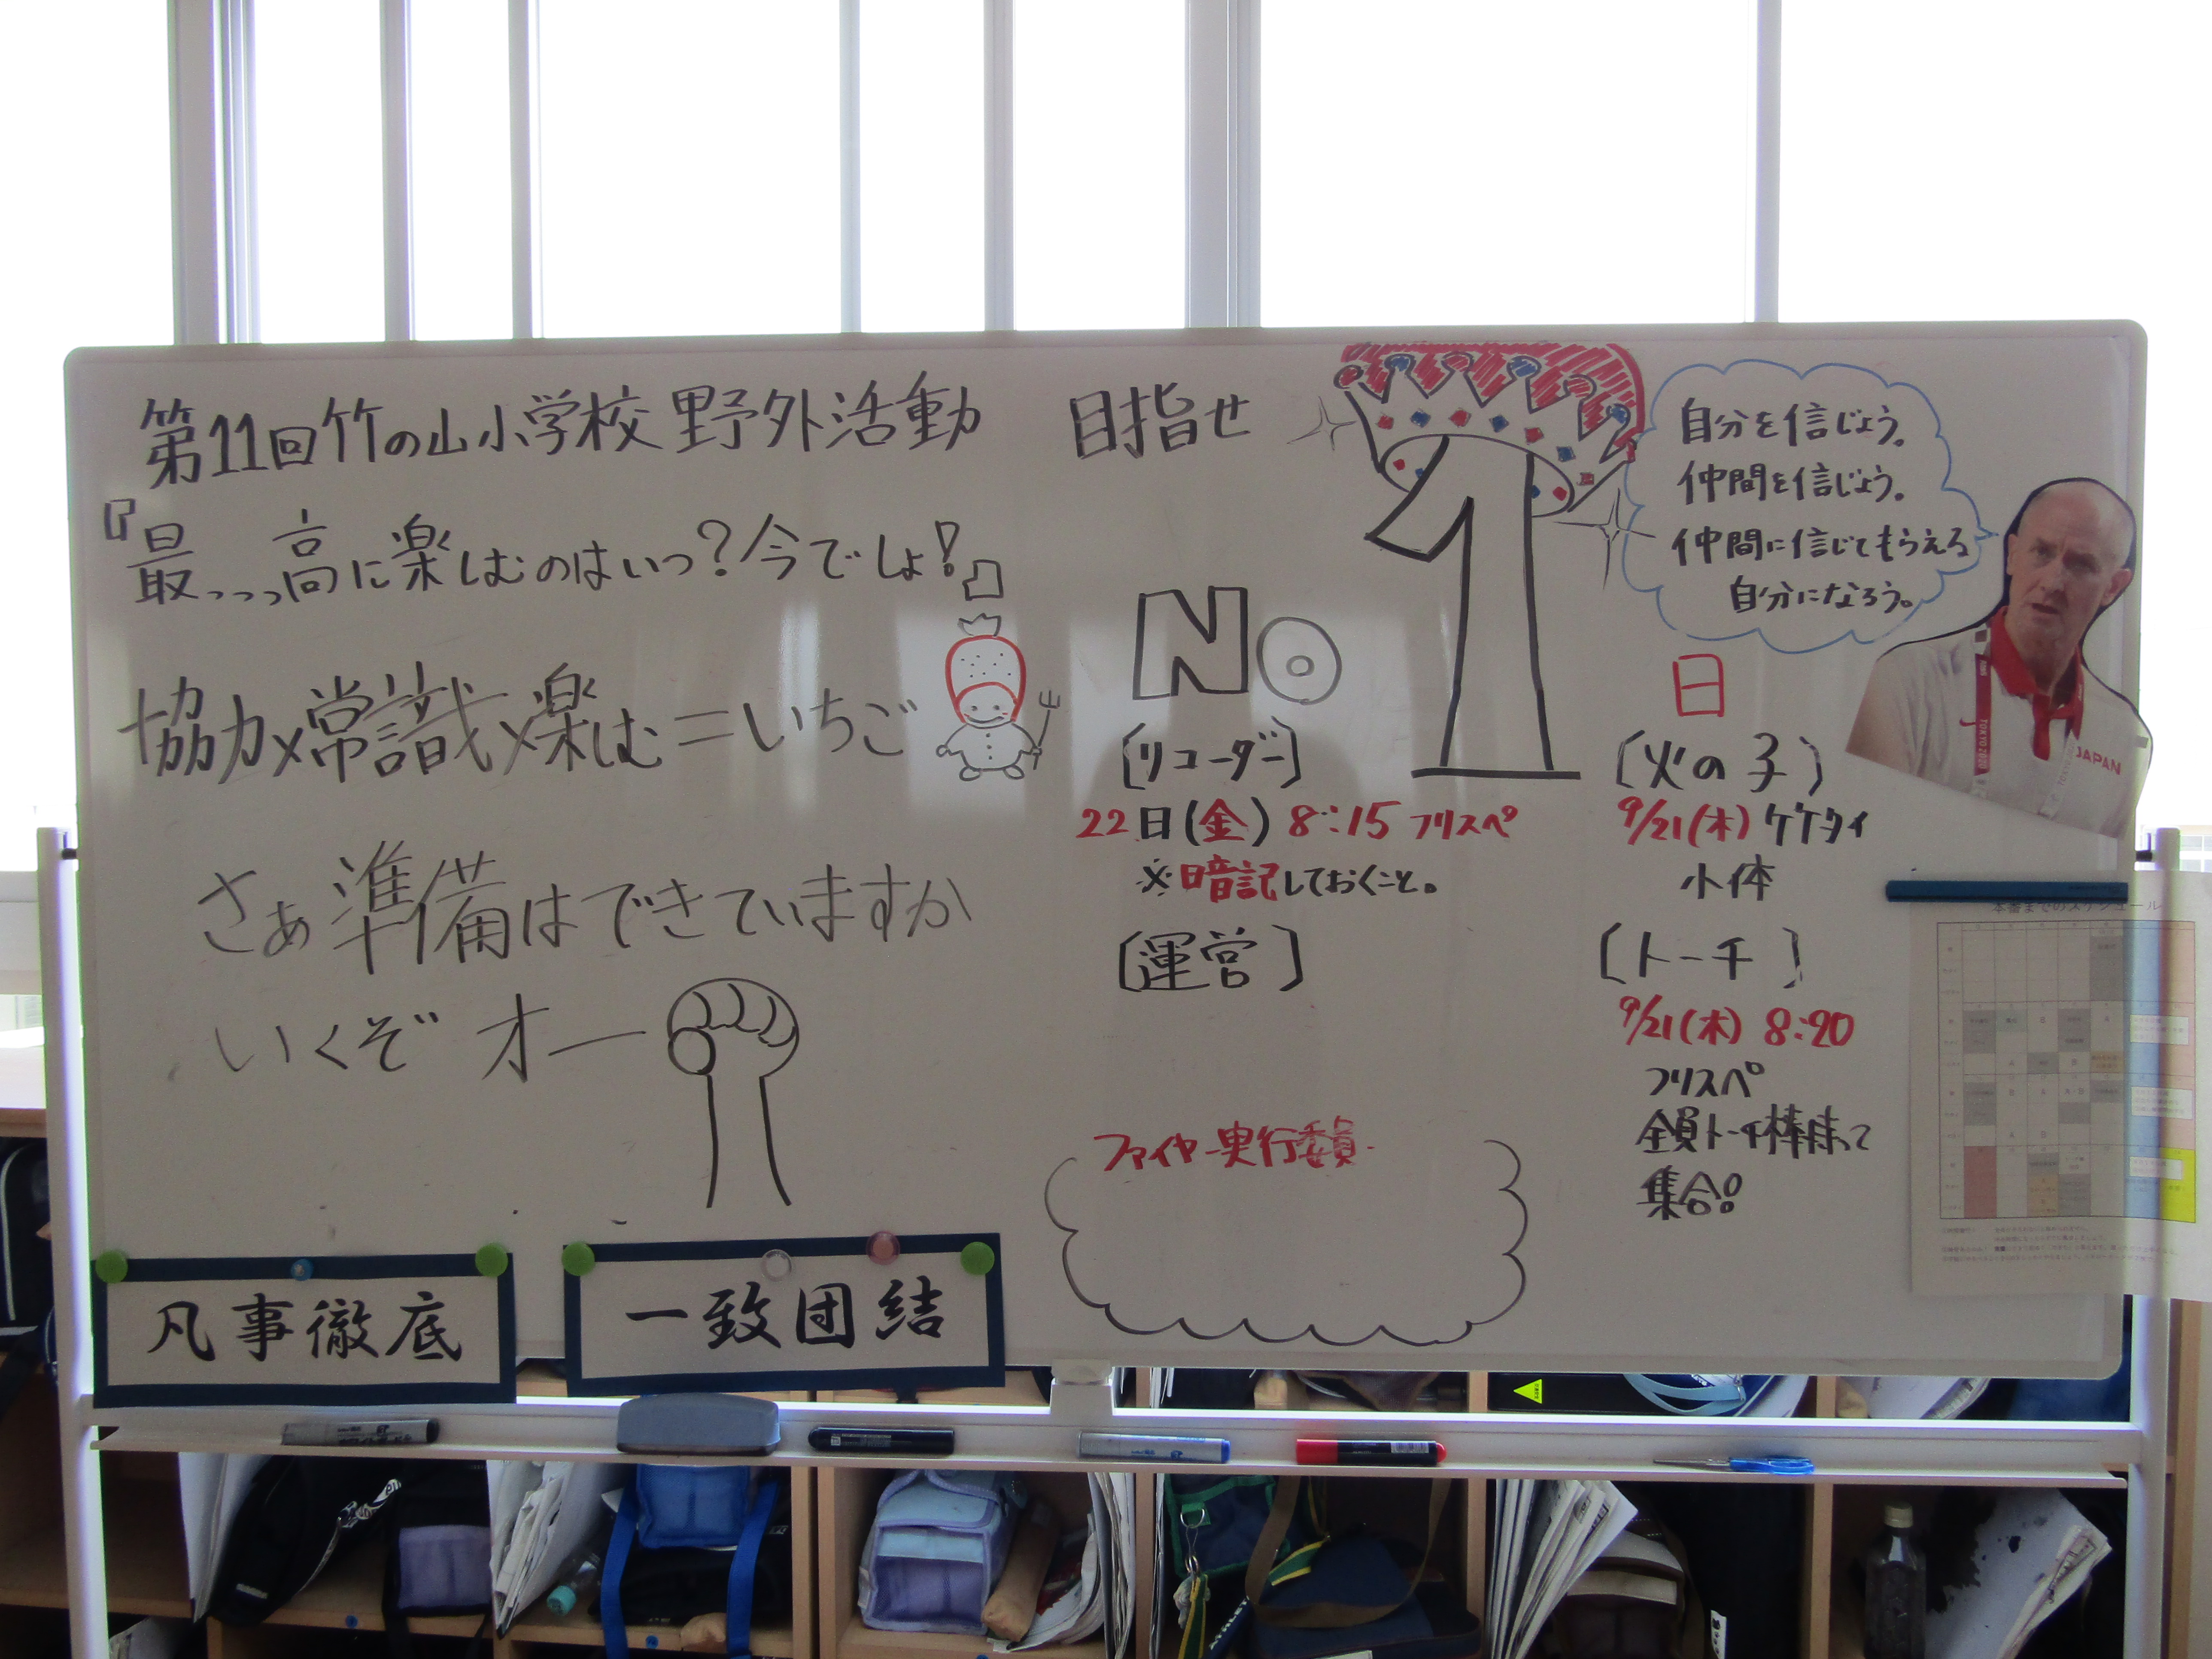 第11回竹の山小学校野外活動
『最っっっ高に楽しむのはいつ?今でしょ!』
協力×常識×楽しむ=いちご
さぁ準備はできていますか
いくぞ オー
凡事徹底
一致団結
目指せ
No 1
自分を信じよう。
仲間を信じよう。
仲間に信じてもらえる
自分になろう。
TOKYO 2020
JAPAN
〔リコーダー〕
22日(金) 8:15 フリスペ
※暗記しておくこと。
〔運営〕
ファイヤー実行委員
日
〔火の子〕
9/21(木) ケケタイ
小体
〔トーチ〕
9/21(木) 8:20
フリスペ
全員トーチ棒持って
集合!!
本番までのスケジュール